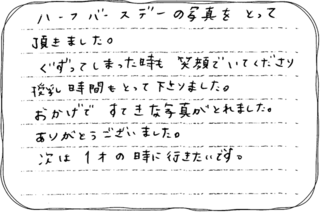 ハーフバースデーの写真をとって
頂きました。
ぐずってしまった時も笑顔でいてくださり
授乳時間もとって下さりました。
おかげですてきな写真がとれました。
ありがとうございました。
次は1才の時に行きたいです。